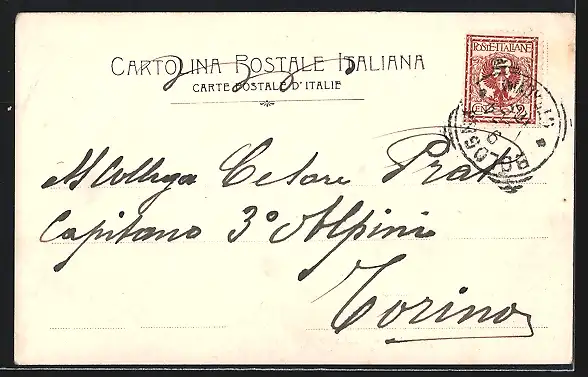 CARTOLINA POSTALE ITALIANA
CARTE POSTALE D'ITALIE
POSTE ITALIANE
CENT. 2
Al Collega Cesare Prat
Capitano 3º Alpini
Torino